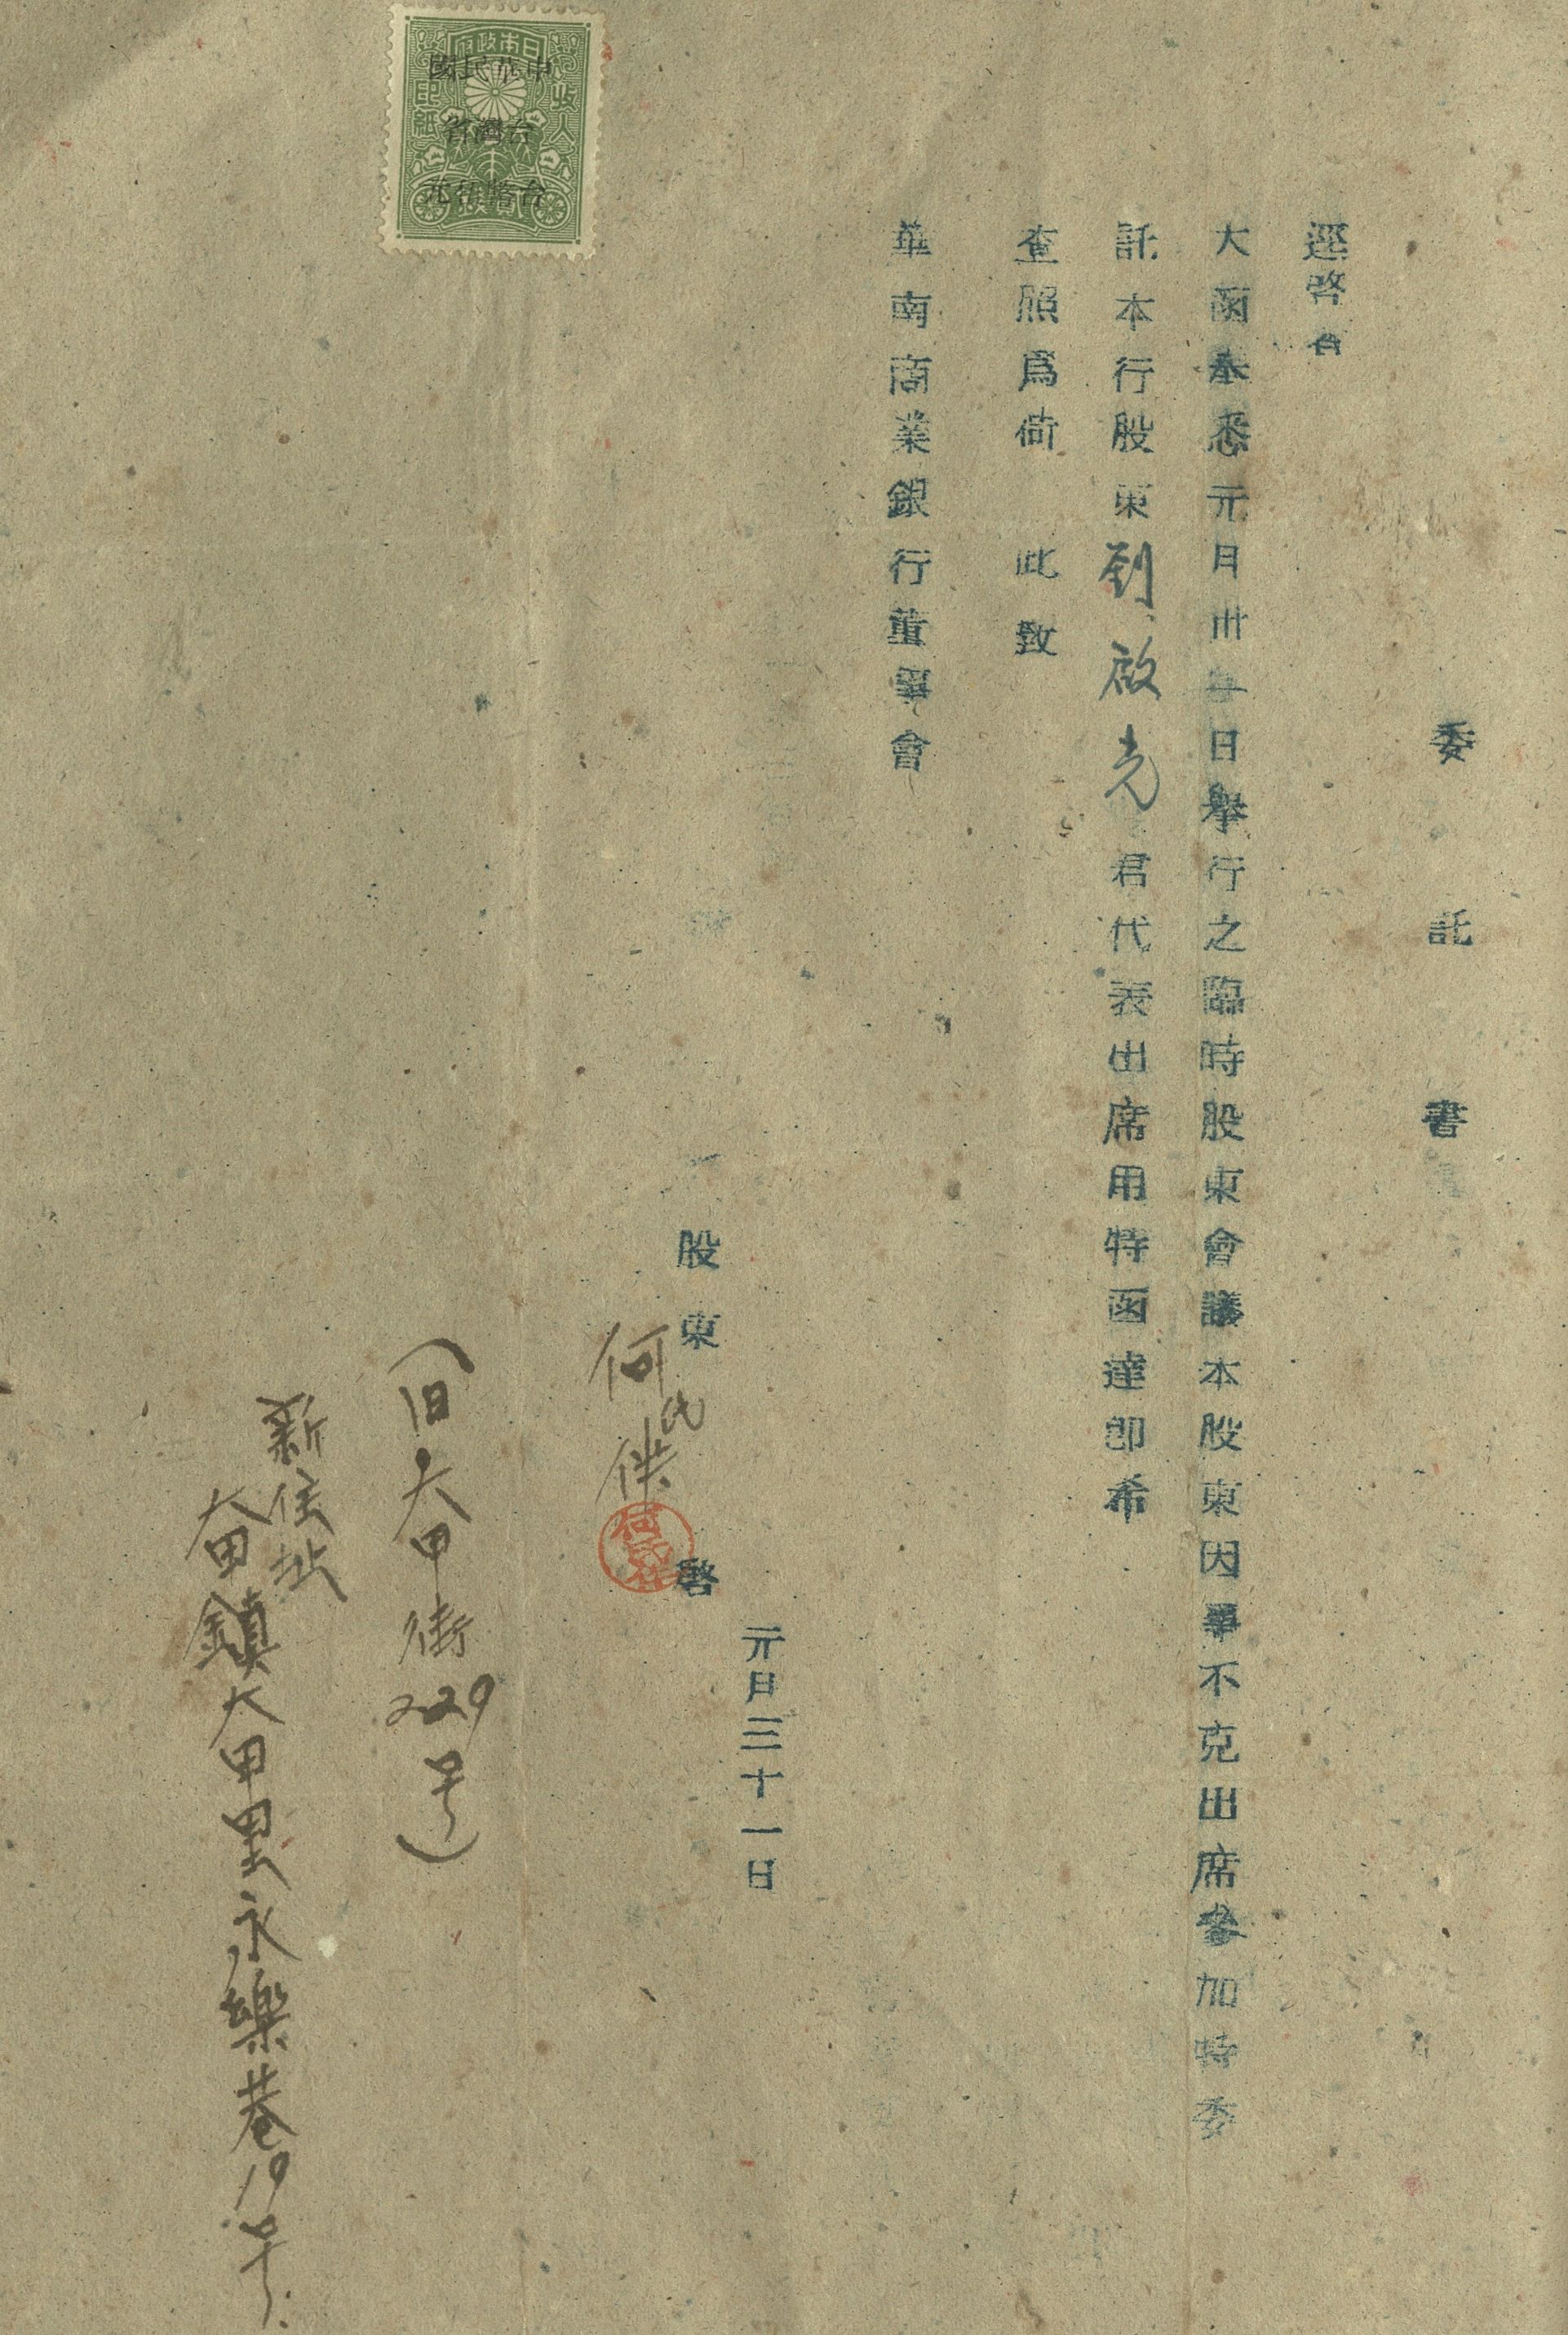 委託書
逕啓者
大函奉悉元月卅一日舉行之臨時股東會議本股東因事不克出席參加特委
託本行股東劉啟光君代表出席用特函達即希
查照為荷　此致
華南商業銀行董事會
元月三十一日
股東　啓
何氏
(旧大甲街229号)
新住址
大甲鎮大甲里永樂巷19号
日本政府
收入印紙
中華民國
台灣省